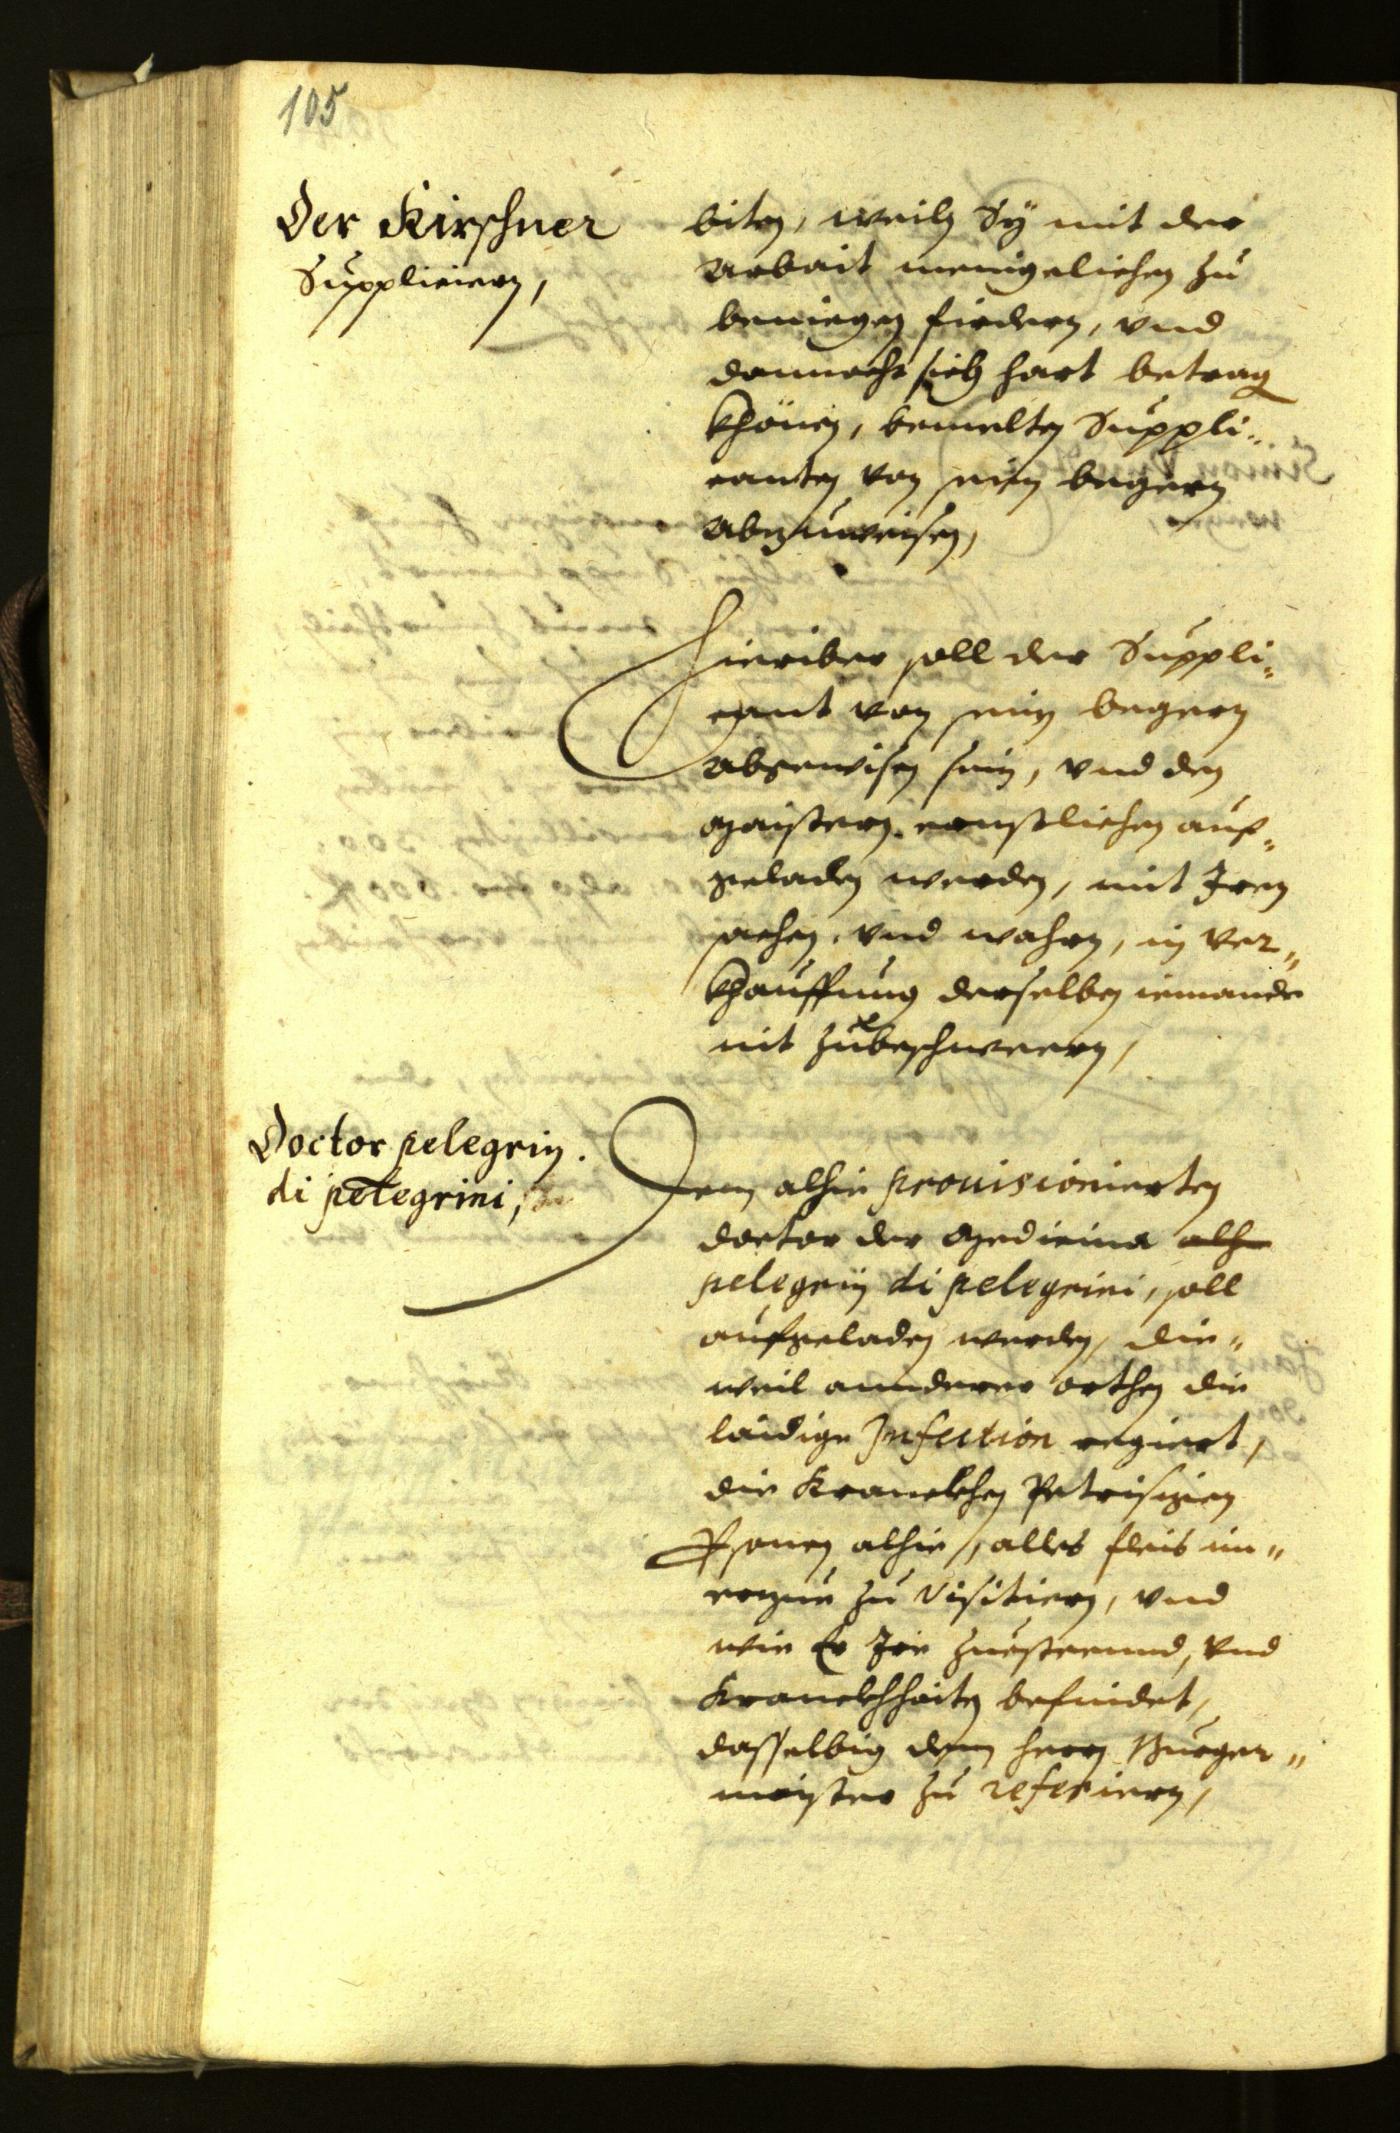 105
Der Kirschner
Suppliciern,
biten, weiln Sÿ mit der
Arbait menigelichen zu
beniegen firdern, vnd
dannocht sich hart betrag
khönen, bemelten Suppli-
canten von sein begern
abzuweisen,
Hieriber soll der Suppli-
cant von sein begern
abgewisen sein, vnd den
Maistern ernstlichen auf-
geladen werden, mit Iren
sachen, vnd wahrn, in ver-
khauffung derselben iemande
nit zubeschweern,
Doctor pelegrin.
di pelegrini,
Dem alhie prouisionierten
doctor der Medicina alh
pelegrin di pelegrini, soll
aufgeladen werden, die-
weil annderer orthen die
laidige Infection regiert,
die Kranckhen
Personen alhie, alles fleis im-
erzue zu visitiern, vnd
wie Er Ire zuesteennd, vnd
Kranckhhaiten befindet,
dasselbig dem herrn Burger-
maister zu referiern,